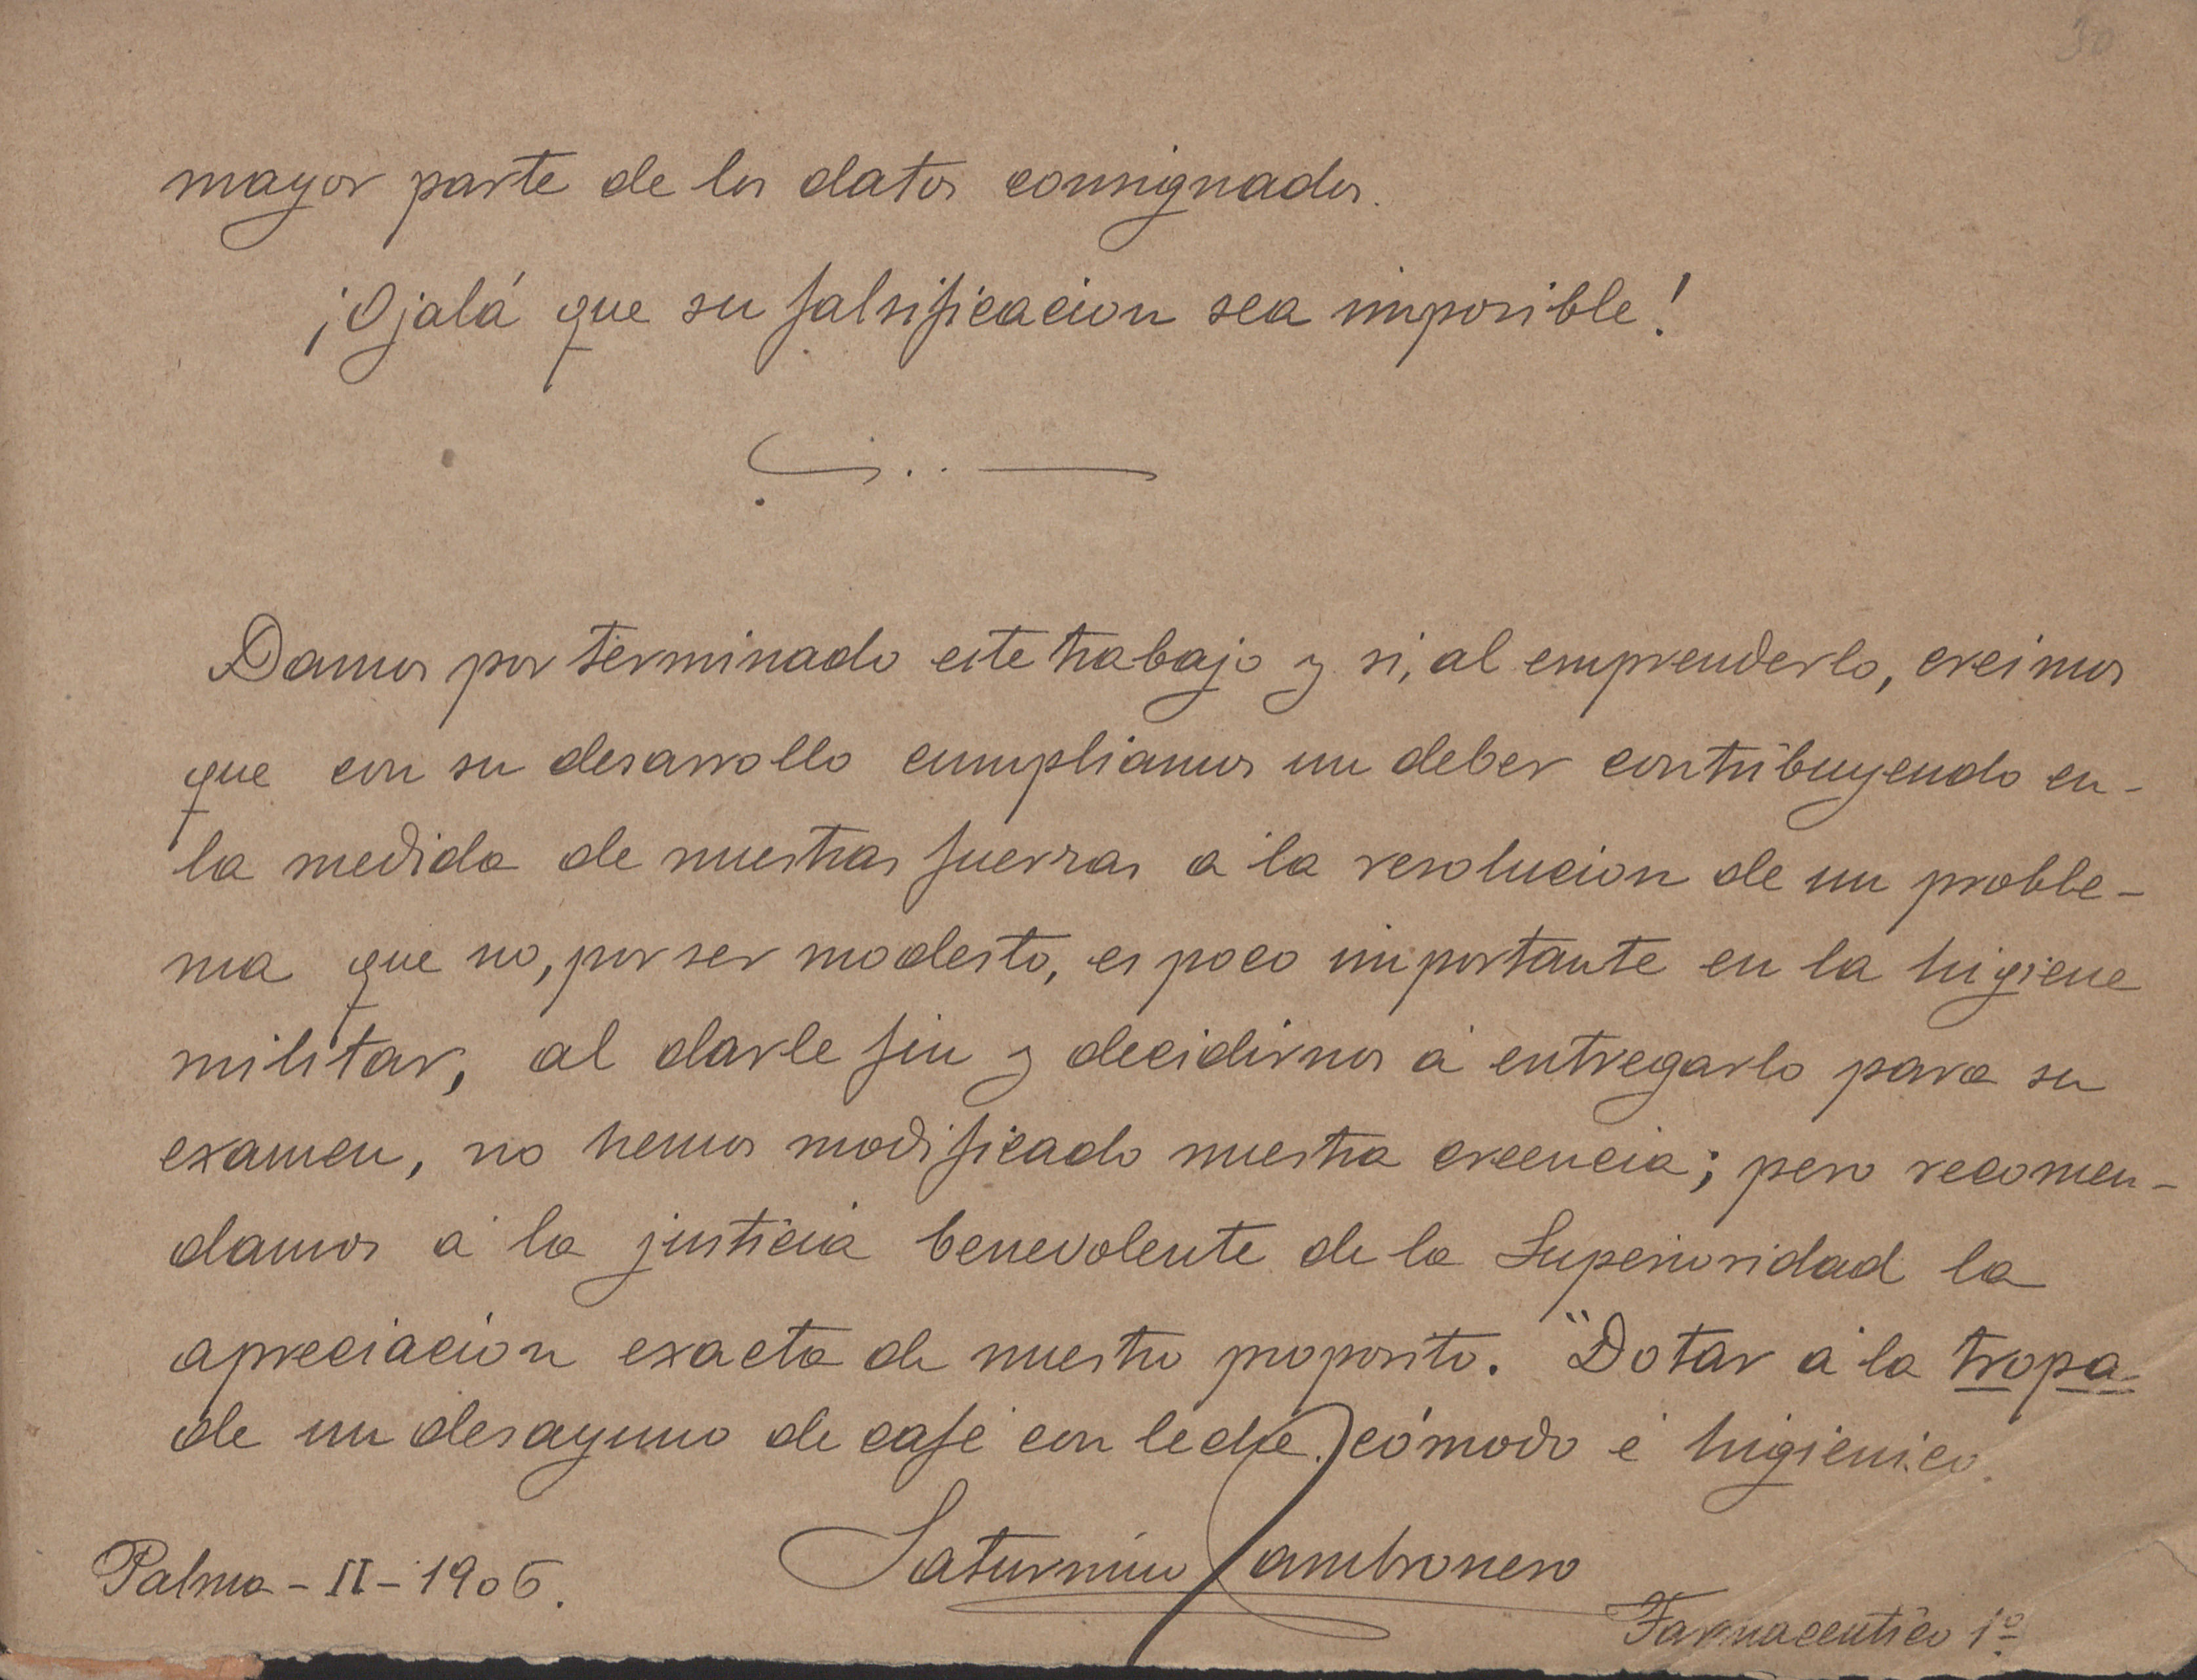 30
mayor parte de los datos consignados.
¡Ojalá que su falsificacion sea imposible!
Damos por terminado este trabajo y si, al emprenderlo, creimos
que con su desarrollo cumpliamos un deber contribuyendo en-
la medida de nuestras fuerzas a la resolucion de un proble-
ma que no, por ser modesto, es poco importante en la higiene
militar, al darle fin y decidirnos á entregarlo para su
examen, no hemos modificado nuestra creencia; pero recomen-
damos á la justicia benevolente de la Superioridad la
apreciacion exacta de nuestro proposito. "Dotar á la tropa
de un desayuno de café con leche, cómodo é higienico.
Saturnino Cambronero
Palma - II - 1906.
Farmaceutico 1º